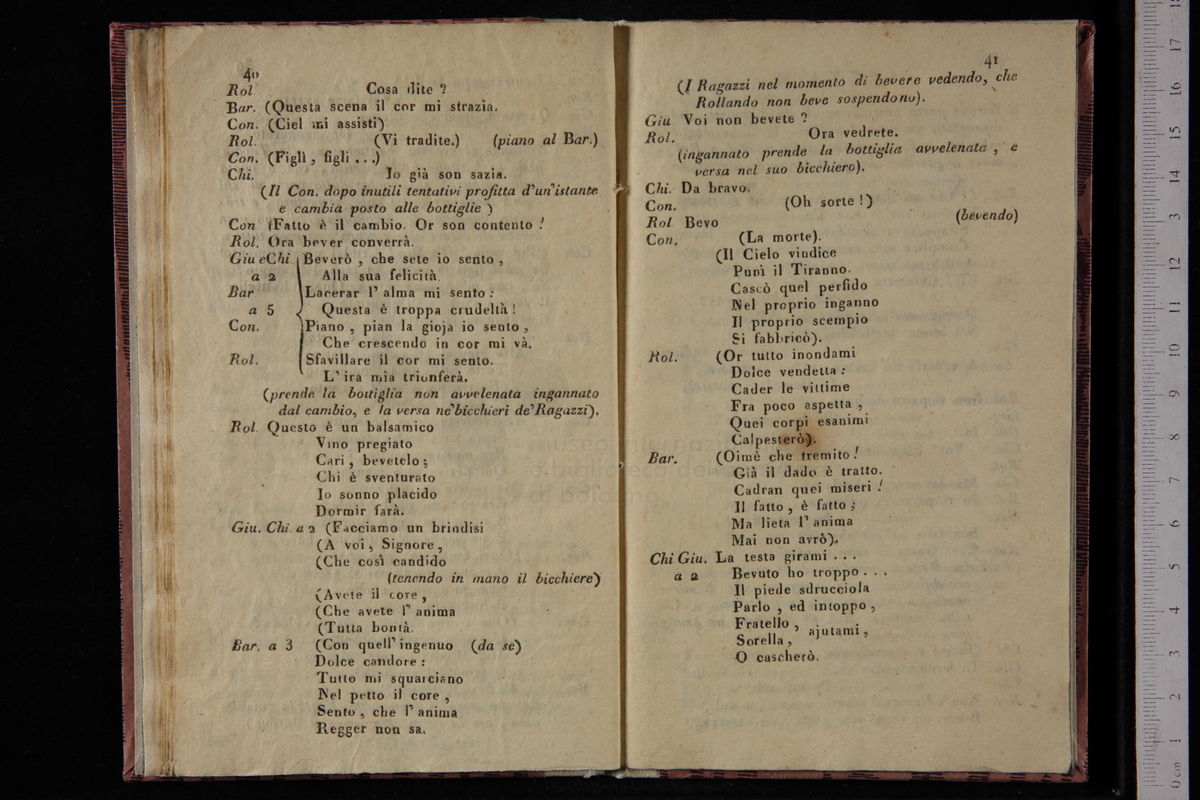 40
Rol Cosa dite ?
Bar. (Questa scena il cor mi strazia.
Con. (Ciel mi assisti).
Rol. (Vi tradite.) (piano al Bar.)
Con. (Figli, figli . . .)
Chi. Io già son sazia.
(Il Con. dopo inutili tentativi profitta d'un'istante
e cambia posto alle bottiglie )
Con (Fatto è il cambio. Or son contento !
Rol. Ora bever converrà.
Giu e Chi. Beverò , che sete io sento ,
a 2 Alla sua felicità.
Bar Lacerar l' alma mi sento :
a 5 Questa è troppa crudeltà !
Con. Piano , pian la gioja io sento ,
Che crescendo in cor mi và.
Rol. Sfavillare il cor mi sento.
L' ira mia trionferà.
(prende la bottiglia non avvelenata ingannato
dal cambio, e la versa ne'bicchieri de'Ragazzi).
Rol. Questo è un balsamico
Vino pregiato
Cari , bevetelo ;
Chi è sventurato
Io sonno placido
Dormir farà.
Giu. Chi. a 2 (Facciamo un brindisi
(A voi , Signore ,
(Che così candido
(tenendo in mano il bicchiere)
(Avete il core ,
(Che avete l' anima
(Tutta bontà.
Bar. a 3 (Con quell' ingenuo (da se)
Dolce candore :
Tutto mi squarciano
Nel petto il core ,
Sento , che l' anima
Regger non sa.
41
(I Ragazzi nel momento di bevere vedendo, che
Rollando non beve sospendono).
Giu Voi non bevete ?
Rol. Ora vedrete.
(ingannato prende la bottiglia avvelenata , e
versa nel suo bicchiero).
Chi. Da bravo.
Con. (Oh sorte !)
Rol Bevo (bevendo)
Con. (La morte).
(Il Cielo vindice
Punì il Tiranno.
Cascò quel perfido
Nel proprio inganno
Il proprio scempio
Si fabbricò).
Rol. (Or tutto inondami
Dolce vendetta :
Cader le vittime
Fra poco aspetta ,
Quei corpi esanimi
Calpesterò).
Bar. (Oimè che tremito !
Già il dado è tratto.
Cadran quei miseri !
Il fatto , è fatto ;
Ma lieta l' anima
Mai non avrò).
Chi Giu. La testa girami . . .
a 2 Bevuto ho troppo . . .
Il piede sdrucciola
Parlo , ed intoppo ,
Fratello , . . .
Sorella , ajutami ,
O cascherò.